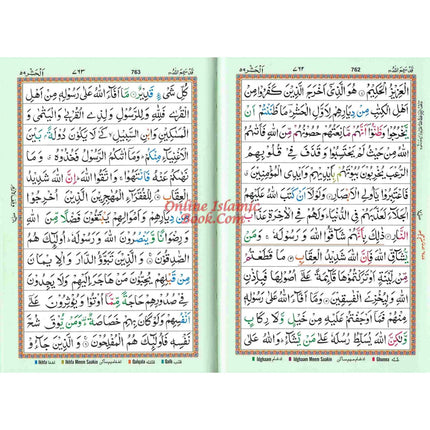 قَدْ سَمِعَ اللّٰهُ 762 ۷۶۲ اَلْحَشْر ۵۹
الْعَزِيْزُ الْحَكِيْمُ ۝ هُوَ الَّذِيْۤ اَخْرَجَ الَّذِيْنَ كَفَرُوْا مِنْ
اَهْلِ الْكِتٰبِ مِنْ دِيَارِهِمْ لِاَوَّلِ الْحَشْرِ ؔ مَا ظَنَنْتُمْ اَنْ
يَّخْرُجُوْا وَظَنُّوْۤا اَنَّهُمْ مَّانِعَتُهُمْ حُصُوْنُهُمْ مِّنَ اللّٰهِ فَاَتٰىهُمُ
اللّٰهُ مِنْ حَيْثُ لَمْ يَحْتَسِبُوْا وَقَذَفَ فِيْ قُلُوْبِهِمُ
الرُّعْبَ يُخْرِبُوْنَ بُيُوْتَهُمْ بِاَيْدِيْهِمْ وَاَيْدِي الْمُؤْمِنِيْنَ
فَاعْتَبِرُوْا يٰۤاُولِي الْاَبْصَارِ ۝ وَلَوْلَاۤ اَنْ كَتَبَ اللّٰهُ عَلَيْهِمُ
الْجَلَآءَ لَعَذَّبَهُمْ فِي الدُّنْيَا وَلَهُمْ فِي الْاٰخِرَةِ عَذَابُ
النَّارِ ۝ ذٰلِكَ بِاَنَّهُمْ شَآقُّوا اللّٰهَ وَرَسُوْلَهٗ وَمَنْ
يُّشَآقِّ اللّٰهَ فَاِنَّ اللّٰهَ شَدِيْدُ الْعِقَابِ ۝ مَا قَطَعْتُمْ
مِّنْ لِّيْنَةٍ اَوْ تَرَكْتُمُوْهَا قَآئِمَةً عَلٰۤى اُصُوْلِهَا فَبِاِذْنِ
اللّٰهِ وَلِيُخْزِيَ الْفٰسِقِيْنَ ۝ وَمَاۤ اَفَآءَ اللّٰهُ عَلٰى رَسُوْلِهٖ
مِنْهُمْ فَمَاۤ اَوْجَفْتُمْ عَلَيْهِ مِنْ خَيْلٍ وَّلَا رِكَابٍ
وَّلٰكِنَّ اللّٰهَ يُسَلِّطُ رُسُلَهٗ عَلٰى مَنْ يَّشَآءُ وَاللّٰهُ عَلٰى
Idghaam Idghaam Meem Saakin Ghunna
قَدْ سَمِعَ اللّٰهُ 763 ۷۶۳ اَلْحَشْر ۵۹
كُلِّ شَيْءٍ قَدِيْرٌ ۝ مَاۤ اَفَآءَ اللّٰهُ عَلٰى رَسُوْلِهٖ مِنْ اَهْلِ
الْقُرٰى فَلِلّٰهِ وَلِلرَّسُوْلِ وَلِذِي الْقُرْبٰى وَالْيَتٰمٰى وَ
الْمَسٰكِيْنِ وَابْنِ السَّبِيْلِ كَيْ لَا يَكُوْنَ دُوْلَةًۢ بَيْنَ
الْاَغْنِيَآءِ مِنْكُمْ وَمَاۤ اٰتٰىكُمُ الرَّسُوْلُ فَخُذُوْهُ وَمَا
نَهٰىكُمْ عَنْهُ فَانْتَهُوْا وَاتَّقُوا اللّٰهَ اِنَّ اللّٰهَ شَدِيْدُ
الْعِقَابِ ۝ لِلْفُقَرَآءِ الْمُهٰجِرِيْنَ الَّذِيْنَ اُخْرِجُوْا
مِنْ دِيَارِهِمْ وَاَمْوَالِهِمْ يَبْتَغُوْنَ فَضْلًا مِّنَ اللّٰهِ
وَرِضْوَانًا وَّيَنْصُرُوْنَ اللّٰهَ وَرَسُوْلَهٗ اُولٰٓئِكَ هُمُ
الصّٰدِقُوْنَ ۝ وَالَّذِيْنَ تَبَوَّؤُ الدَّارَ وَالْاِيْمَانَ
مِنْ قَبْلِهِمْ يُحِبُّوْنَ مَنْ هَاجَرَ اِلَيْهِمْ وَلَا يَجِدُوْنَ
فِيْ صُدُوْرِهِمْ حَاجَةً مِّمَّاۤ اُوْتُوْا وَيُؤْثِرُوْنَ عَلٰۤى
اَنْفُسِهِمْ وَلَوْ كَانَ بِهِمْ خَصَاصَةٌ وَمَنْ يُّوْقَ شُحَّ
نَفْسِهٖ فَاُولٰٓئِكَ هُمُ الْمُفْلِحُوْنَ ۝ وَالَّذِيْنَ جَآءُوْ
Ikhfa Ikhfa Meem Saakin Qalqala Qalb
Online Islamic
Book.Com